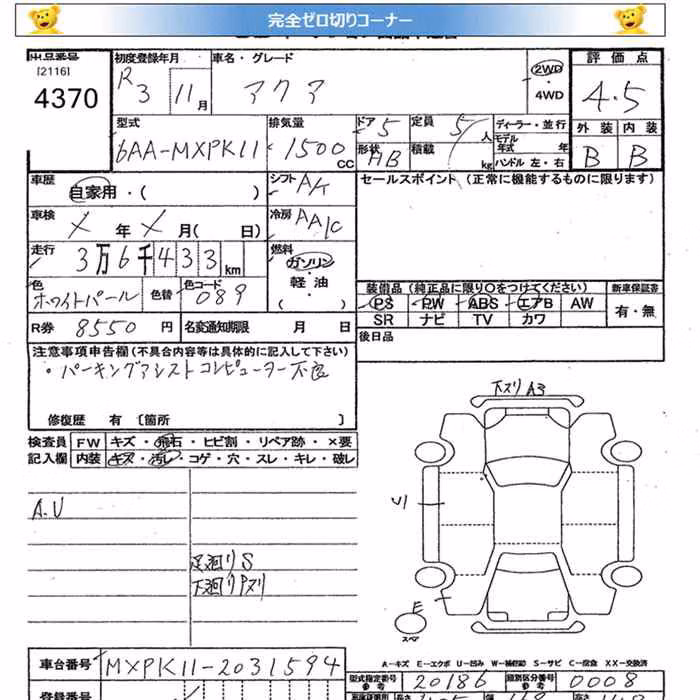 完全ゼロ切りコーナー
出品番号 初度登録年月 車名・グレード 評価点
[2116] R3 11月 アクア 2WD 4.5
4370 4WD
型式 排気量 ドア 5 定員 5人 ディーラー・並行 外装 内装
モデル年式 年
6AA-MXPK11 1500CC 形状 HB 積載 kg ハンドル 左・右 B B
車歴 自家用・( ) シフト セールスポイント (正常に機能するものに限ります)
車検 年 月( 日) 冷房 AAC
走行 3万6千433km 燃料 ガソリン・軽油・( )
装備品 (純正品に限り○をつけてください) 新車保証書
色 ホワイトパール 色替 色コード 089 PS PW ABS エアB AW 有・無
SR ナビ TV カワ
R券 8550円 名変通知期限 月 日 後日品
注意事項申告欄(不具合内容等は具体的に記入して下さい)
・パーキングアシストコンピューター不良
修復歴 有 〔箇所 〕
下スリ A3
検査員 FW キズ・飛石・ヒビ割・リペア跡・×要
記入欄 内装 キズ・汚レ・コゲ・穴・スレ・キレ・破レ
A.U
U1
足廻りS
下廻りPスリ
E
スペア
A-キズ E-エクボ U-凹み W-補修跡 S-サビ C-腐食 XX-交換済
車台番号 MXPK11-2031594 型式指定番号 参考 20186 類別区分番号 参考 0008
登録番号